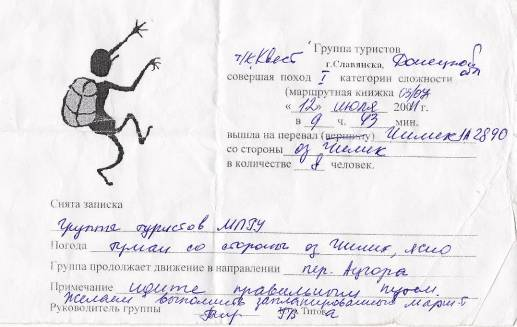 т/к Квест Группа туристов
г.Славянска, Донецкой обл
совершая поход I категории сложности
(маршрутная книжка 03/07
« 12 » июля 2001 г.
в 9 ч. 43 мин.
вышла на перевал (вершину) Чимик 1А 2890
со стороны оз Чилик
в количестве 8 человек.
Снята записка
Группы туристов МПГУ
Погода туман со стороны оз Чилик, ясно
Группа продолжает движение в направлении пер. Аугора
Примечание идите правильным путем.
Желаем выполнить запланированный маршр-т
Руководитель группы Титова